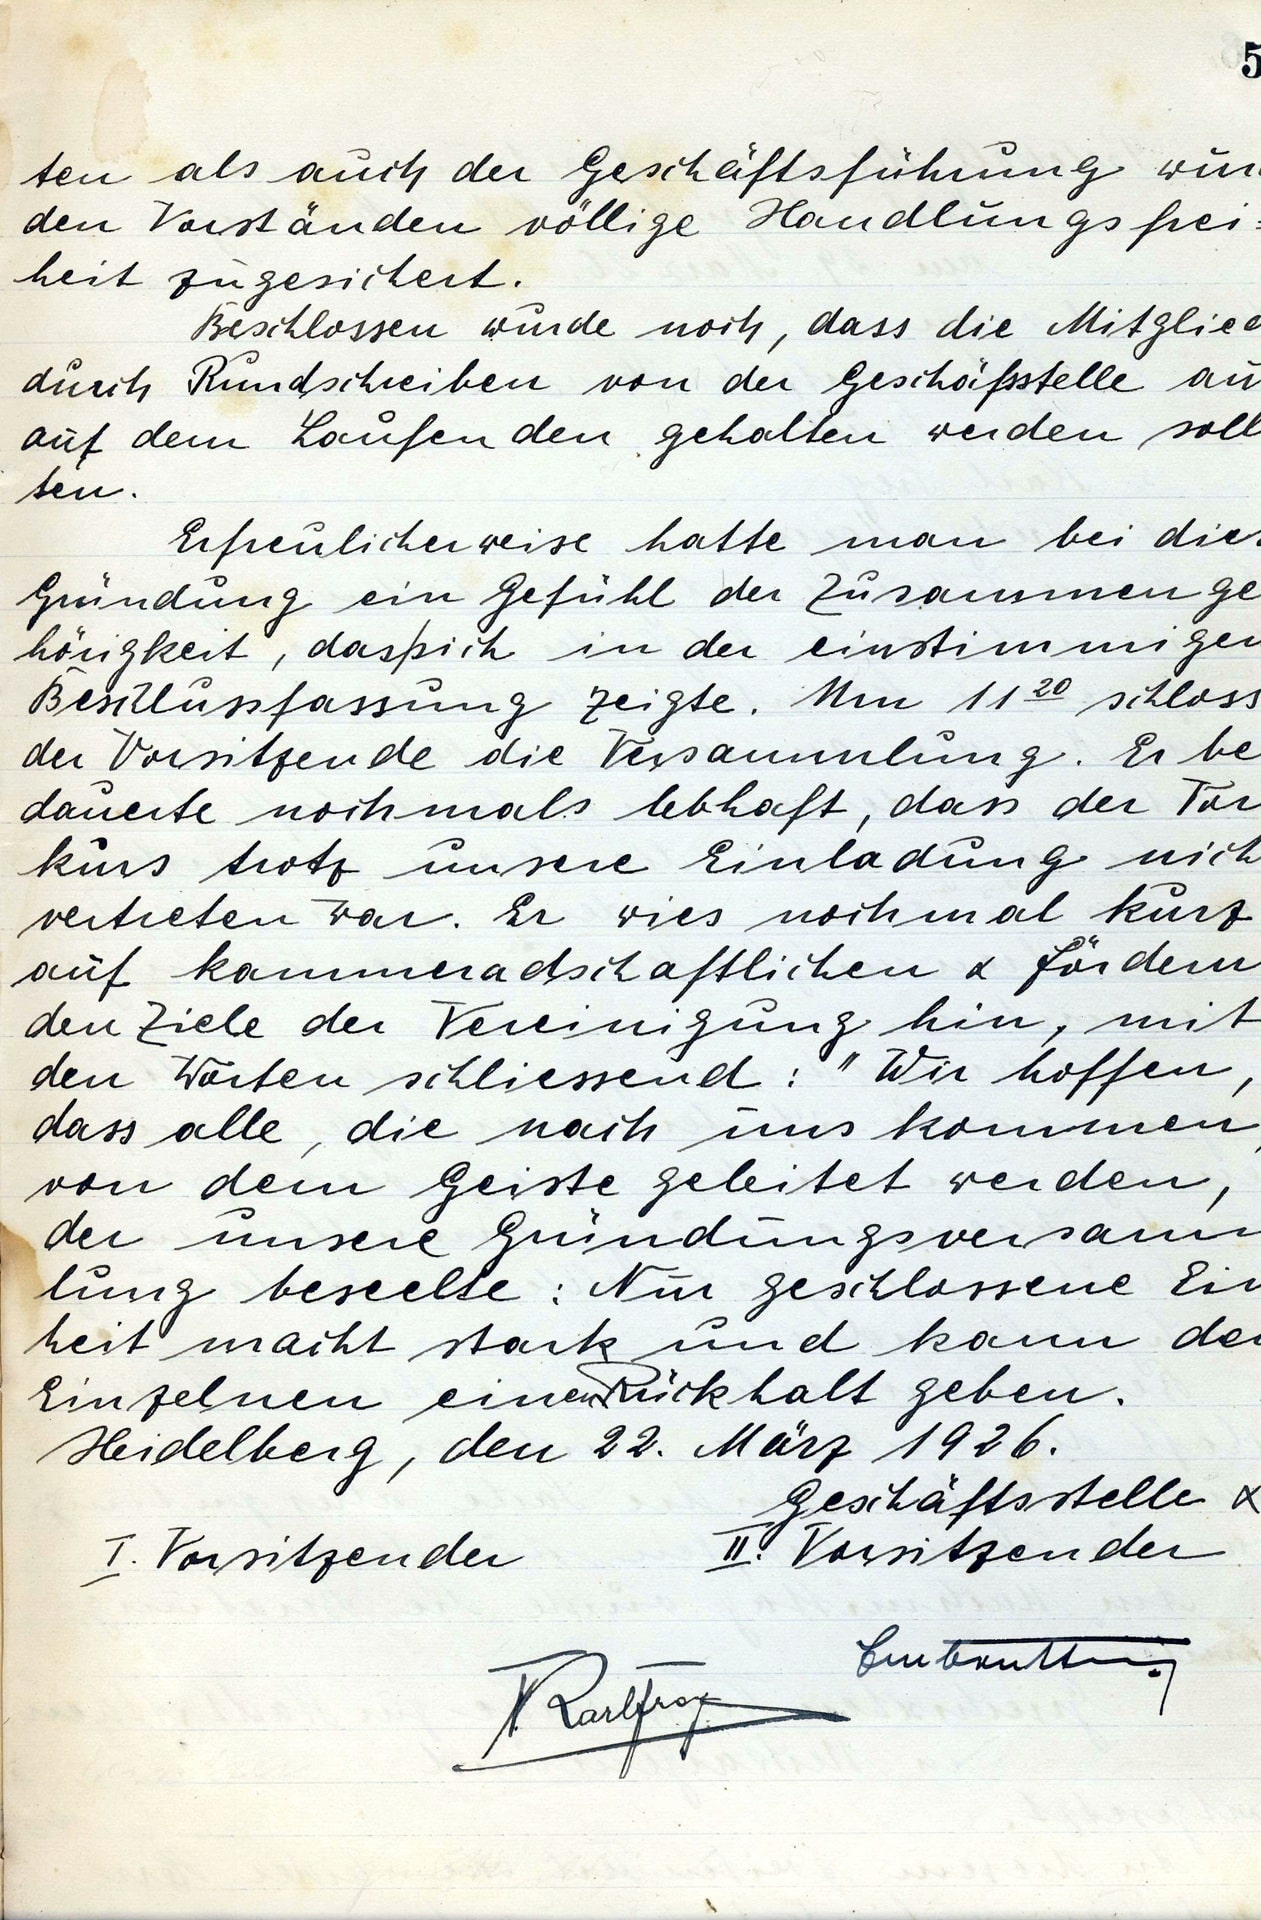 5
ten als auch der Geschäftsführung wur
den Vorständen völlige Handlungsfrei=
heit zugesichert.
Beschlossen wurde noch, dass die Mitglied
durch Rundschreiben von der Geschäftsstelle au
auf dem Laufenden gehalten werden soll
ten.
Erfreulicherweise hatte man bei dies
Gründung ein Gefühl der Zusammenge
hörigkeit, das sich in der einstimmigen
Beschlussfassung zeigte. Um 11 20 schloss
der Vorsitzende die Versammlung. Er be
dauerte nochmals lebhaft, dass der Vor
kurs trotz unsere Einladung nich
vertreten war. Er wies nochmal kurz
auf kammeradschaftlichen & fördern
den Ziele der Vereinigung hin, mit
den Worten schliessend: "Wir hoffen,
dass alle, die nach uns kommen,
von dem Geiste geleitet werden,
der unsere Gründungsversamm
lung beseelte: Nur geschlossene Ein
heit macht stark und kann den
Einzelnen einen Rückhalt geben.
Heidelberg, den 22. März 1926.
Geschäftsstelle &
I. Vorsitzender II. Vorsitzender